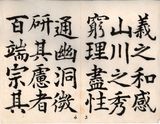 義之和感
山川之秀
窮理盡性
通幽洞微
研其慮者
百端宗其